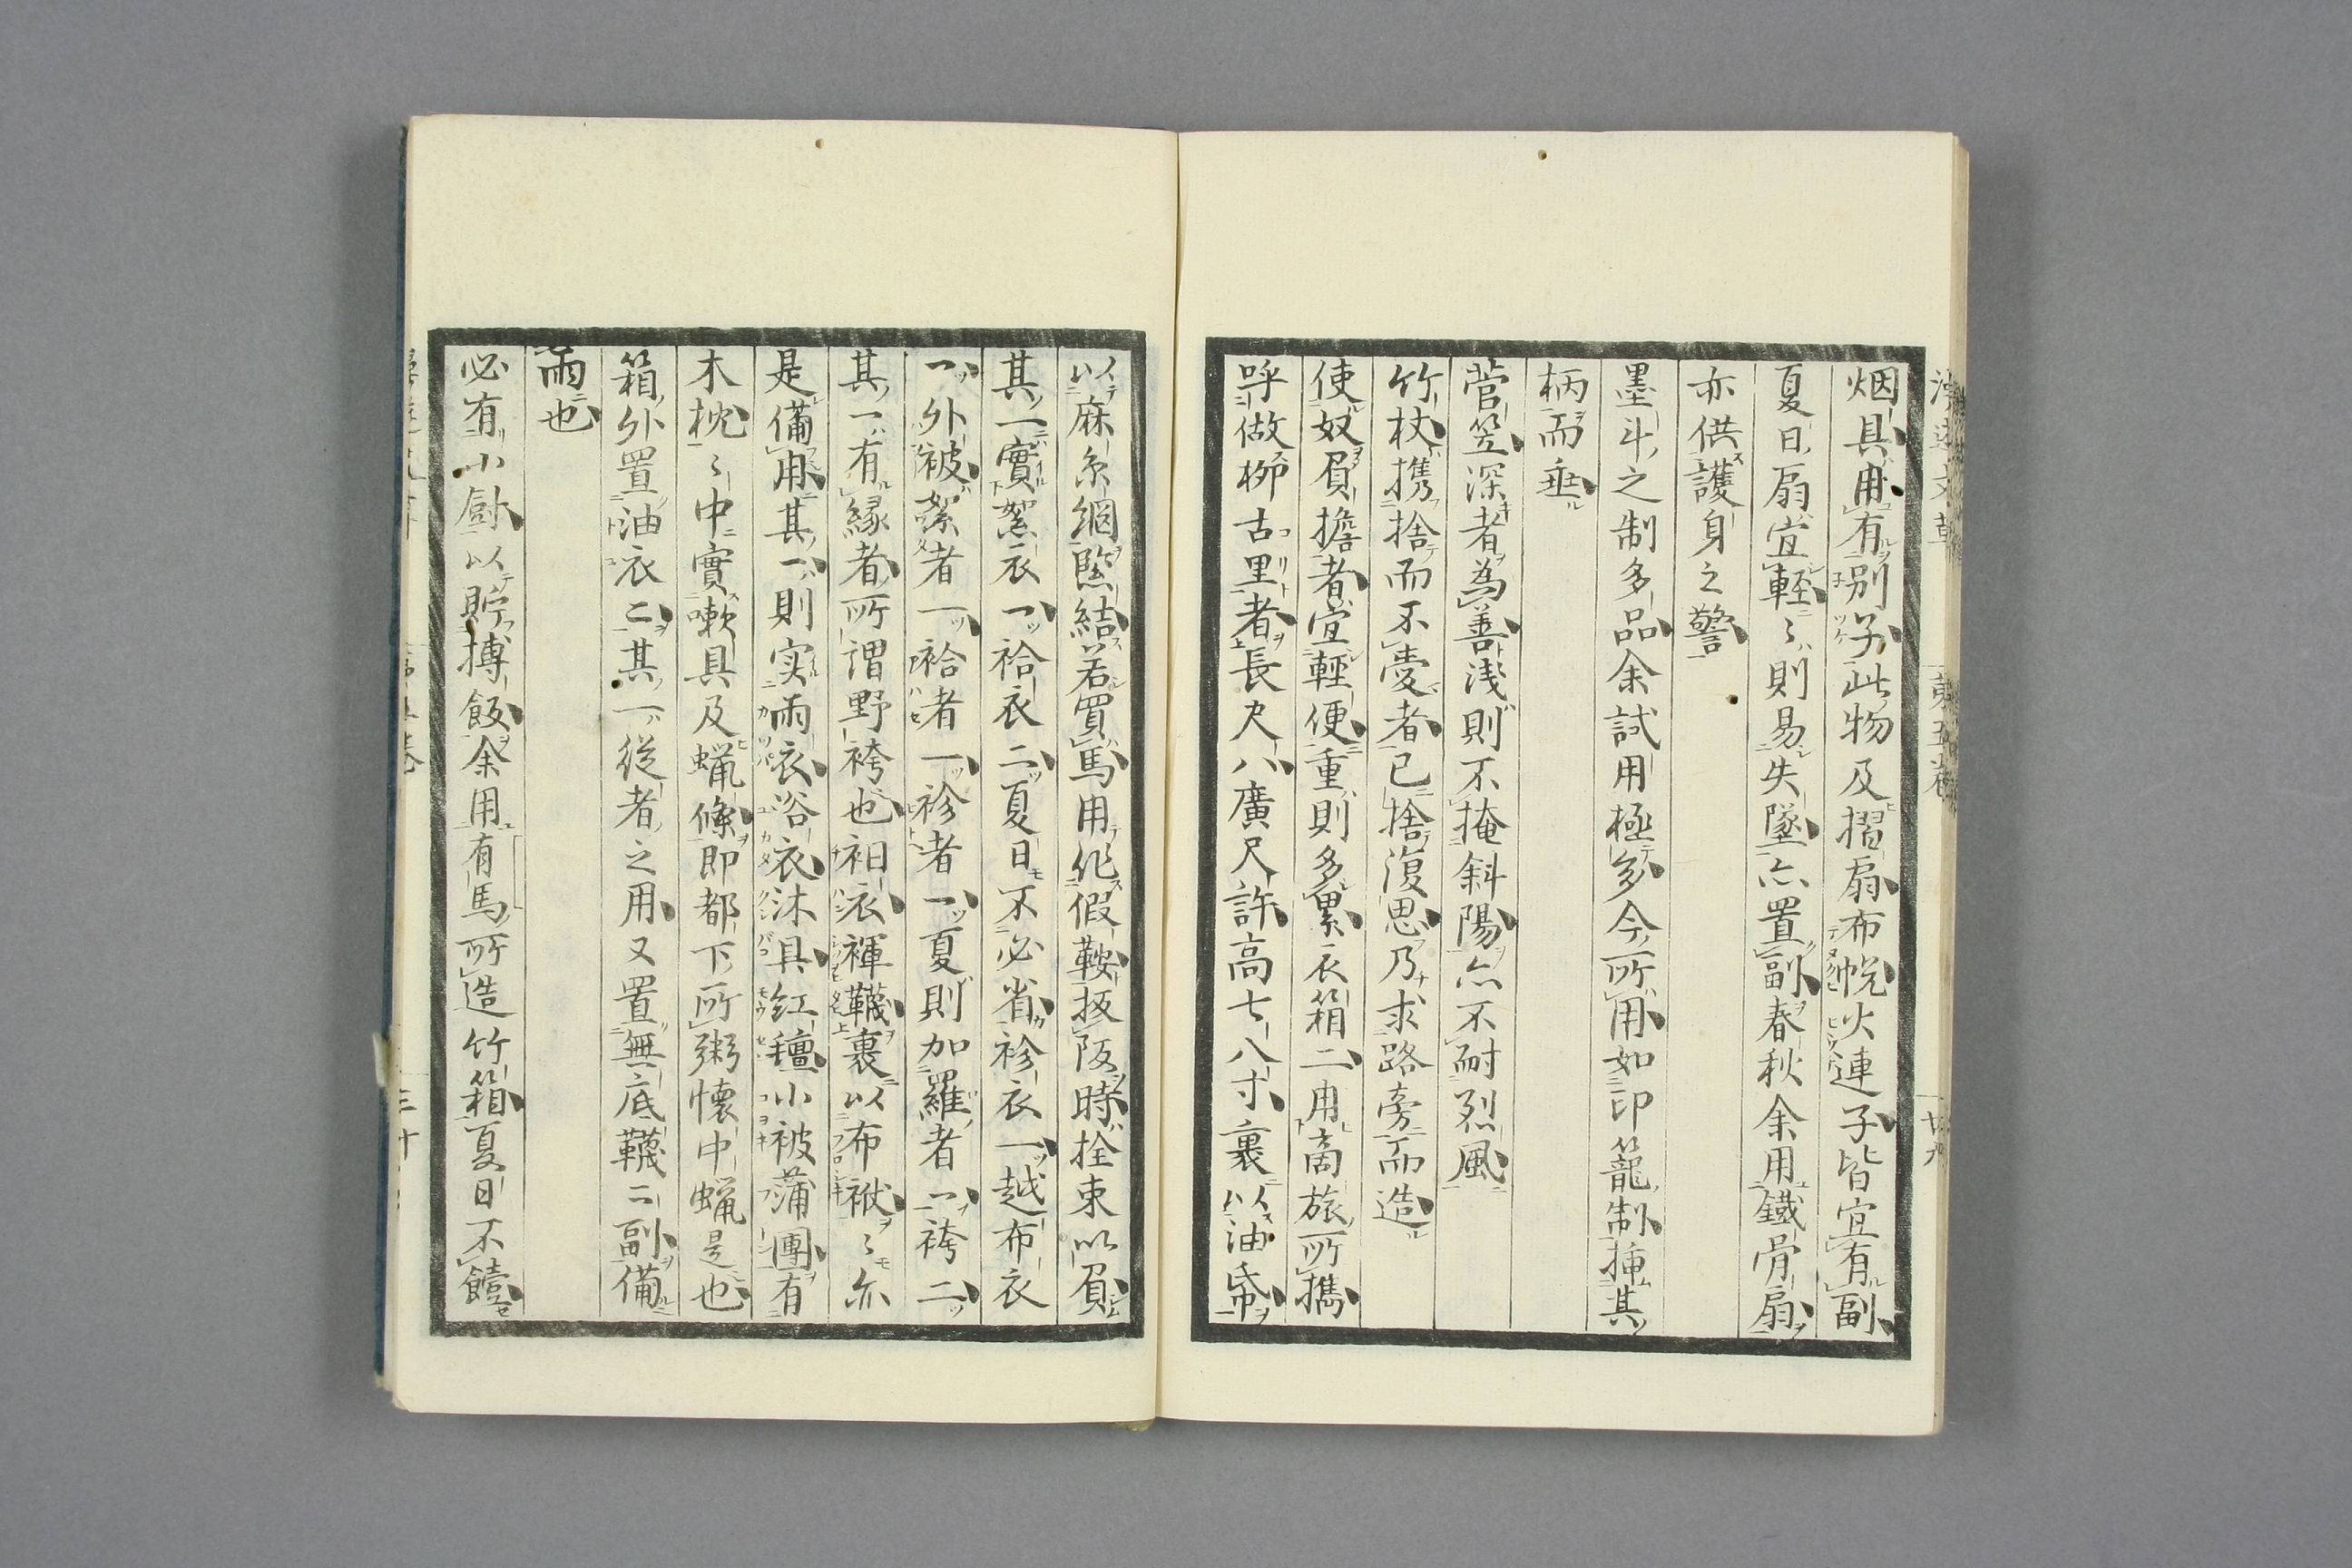 烟具用有別子此物及摺扇布帨火連子皆宜有副
夏日扇宜輕〻則易失墜亦置副春秋余用鐵骨扇
亦供護身之警
墨斗之制多品余試用極多今所用如印籠制挿其
柄而垂
菅笠深者為善浅則不掩斜陽亦不耐烈風
竹杖携捨而不憂者已捨復思乃求路旁而造
使奴負擔者宜輕便重則多累衣箱二用商旅所攜
呼做栁古里者長尺八廣尺許高七八寸裹以油帋
以麻糸綱緊結若買馬用作假鞍扳阪時拴束以負
其一實絮衣一袷衣二夏日不必省袗衣一越布衣
一外被絮者一袷者一袗者一夏則加羅者一袴二
其一有縁者所謂野袴也衵衣褌韈裹以布袱〻亦
是備用其一則实雨衣浴衣沐具紅氊小被蒲團有
木枕〻中實嗽具及蝋條即都下所粥懐中蝋是也
箱外置油衣二其一從者之用又置無底韈二副備
雨也
必有小厨以貯摶飯余用有馬所造竹箱夏日不饐
第五卷
廿九
三十